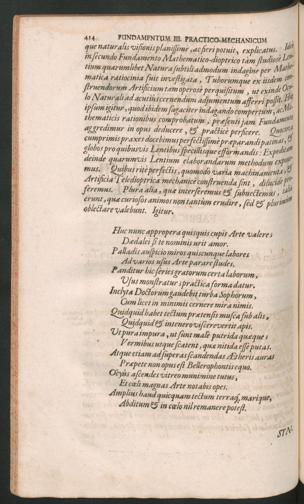 414 FUNDAMENTUM III. PRACTICO-MECHANICUM
que naturalis visionis planissime, ac fieri potuit, explicatus.
in secundo Fundamento Mathematico-dioptrico tam studiosè
tium quarumlibet Natura subtili admodum indagine per
matica ratiocinia fuit investigata, Tuborumque ex iisdem
struendorum Artificium tam operosè perquisitum, ut exinde
lo Naturali ad acutius cernendum adjumentum afferri possit.
ipsum igitur, quod ibidem sagaciter indagando compertum, ac
thematicis rationibus comprobatum, præsenti jam Fundamento
aggredimur in opus deducere, & practicè perficere.
cumprimis praxes docebimus perfectissimè præparandi patinas,
globos pro quibusvis Lentibus specillisque efformandis:
deinde quarumvis Lentium elaborandarum methodum
mus. Quibus rite perfectis, quomodo varia machinamenta, &
Artificia Teledioptrica mechanicè construenda sint,
feremus. Plura alia, quæ inserseremus & subnectemus, talia
erunt, quæ curiosos animos non tantum erudire, sed & plurimum
oblectare valebunt. Igitur.
Huc nunc appropera quisquis cupis Arte valere,
Dædalei si te nominis urit amor.
Palladis auspicio miros quicunque labores
Ad varios usus Arte parare studes.
Panditur hic series gratorum certa laborum,
Usus monstratur practica forma datur.
Inclyta Doctorum gaudebit turba Sophorum,
Cum licet in minimis cernere mira nimis.
Quidquid habet tectum prætensis musca sub alis,
Quidquid & in tenero viscere vertit apis.
Ut pura impura, ut sunt malè putrida quæque;
Vermibus utque scatent, quæ nitida esse putas.
Atque etiam ad superas scandendas Ætheris auras
Præpete non opus est Bellerophontis equo.
Ocyùs ascendes vitreo munimine tutus,
Et cœli magnas Arte notabis opes.
Amplius haud quicquam tectum terraq;, marique,
Abditum & in cœlo nil remanere potest.
SYN-